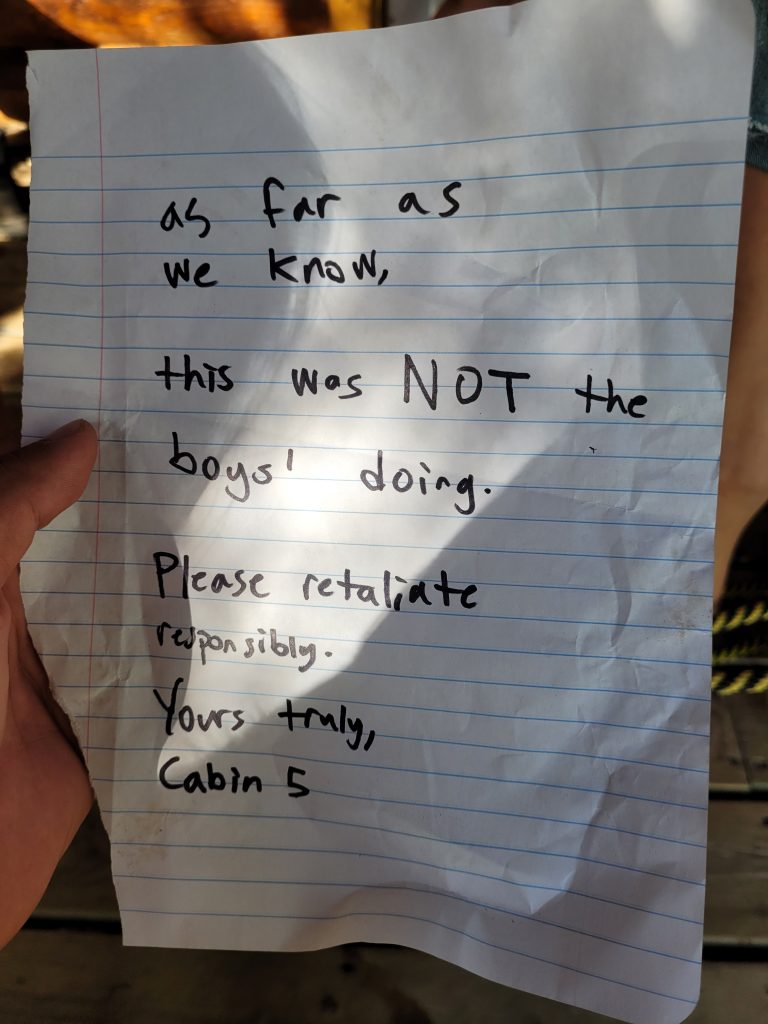 as far as
we know,
this was NOT the
boys' doing.
Please retaliate
responsibly.
Yours truly,
Cabin 5